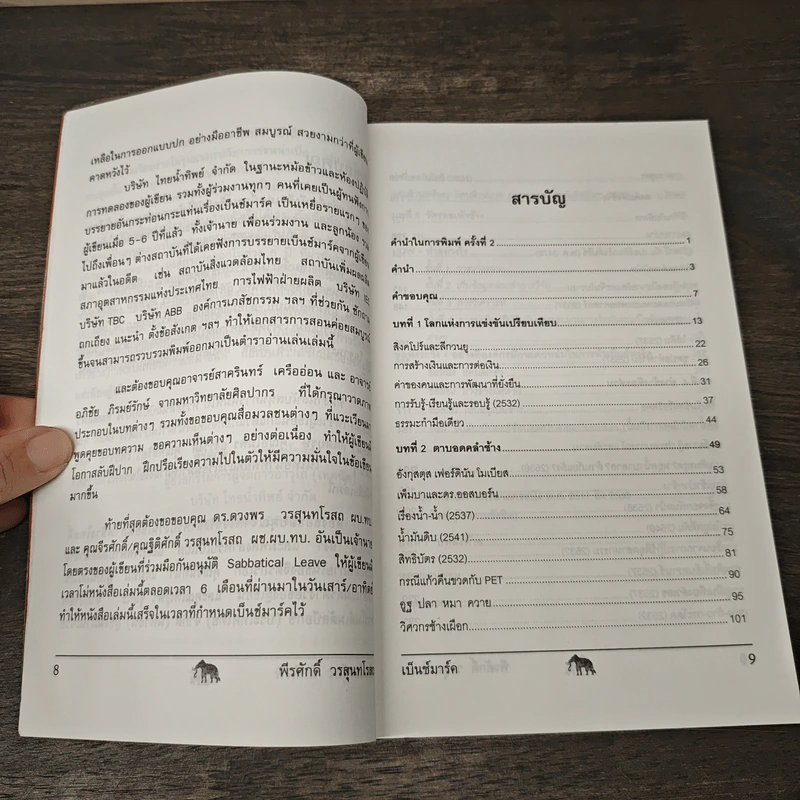 เหลือในการออกแบบปก อย่างมืออาชีพ สมบูรณ์ สวยงามกว่าที่ผู้เขียน
คาดหวังไว้
บริษัท ไทยน้ำทิพย์ จำกัด ในฐานะหม้อข้าวและห้องปฏิบัติ
การทดลองของผู้เขียน รวมทั้งผู้ร่วมงานทุกๆ คนที่เคยเป็นผู้ทนฟังการ
บรรยายอันกระท่อนกระแท่นเรื่องเบ็นช์มาร์ค เป็นเหยื่อรายแรกๆ ของ
ผู้เขียนเมื่อ 5-6 ปีที่แล้ว ทั้งเจ้านาย เพื่อนร่วมงาน และลูกน้อง รวม
ไปถึงเพื่อนๆ ต่างสถาบันที่ได้เคยฟังการบรรยายเบ็นช์มาร์คจากผู้เขียน
มาแล้วในอดีต เช่น สถาบันสิ่งแวดล้อมไทย สถาบันเพิ่มผลผลิต
สภาอุตสาหกรรมแห่งประเทศไทย การไฟฟ้าฝ่ายผลิต บริษัท
บริษัท TBC บริษัท ABB องค์การเภสัชกรรม ฯลฯ ที่ช่วยกัน ซักถาม
ถกเถียง แนะนำ ตั้งข้อสังเกต ฯลฯ ทำให้เอกสารการสอนค่อยสมบูรณ์
ขึ้นจนสามารถรวบรวมพิมพ์ออกมาเป็นตำราอ่านเล่นเล่มนี้
และต้องขอบคุณอาจารย์สาครินทร์ เครืออ่อน และ อาจารย์
อภิชัย ภิรมย์รักษ์ จากมหาวิทยาลัยศิลปากร ที่ได้กรุณาวาดภาพ
ประกอบในบทต่างๆ รวมทั้งขอขอบคุณสื่อมวลชนต่างๆ ที่แวะเวียนมา
พูดคุยขอบทความ ขอความเห็นต่างๆ อย่างต่อเนื่อง ทำให้ผู้เขียนมี
โอกาสลับฝีปาก ฝึกปรือเรียงความไปในตัวให้มีความมั่นใจในข้อเขียน
มากขึ้น
ท้ายที่สุดต้องขอขอบคุณ ดร.ดวงพร วรสุนทโรสถ ผบ.ทบ.
และ คุณจีรศักดิ์/คุณฐิติศักดิ์ วรสุนทโรสถ ผช.ผบ.ทบ. อันเป็นเจ้านาย
โดยตรงของผู้เขียนที่ร่วมมือกันอนุมัติ Sabbatical Leave ให้ผู้เขียน
เวลาโม่หนังสือเล่มนี้ตลอดเวลา 6 เดือนที่ผ่านมาในวันเสาร์/อาทิตย์
ทำให้หนังสือเล่มนี้เสร็จในเวลาที่กำหนดเบ็นช์มาร์คไว้
8 พีรศักดิ์ วรสุนทโรสถ
สารบัญ
คำนำในการพิมพ์ ครั้งที่ 2 1
คำนำ 3
คำขอบคุณ 7
บทที่ 1 โลกแห่งการแข่งขันเปรียบเทียบ 13
สิงคโปร์และลีกวนยู 22
การสร้างเงินและการต่อเงิน 26
ค่าของคนและการพัฒนาที่ยั่งยืน 31
การรับรู้-เรียนรู้และรอบรู้ (2532) 37
ธรรมะกำมือเดียว 44
บทที่ 2 ตาบอดคลำช้าง 49
อังกุสตุส เฟอร์ดินัน โมเบียส 53
เพ็มบาและดร.ออสบอร์น 58
เรื่องน้ำ-น้ำ (2537) 64
น้ำมันดิบ (2541) 75
สิทธิบัตร (2532) 81
กรณีแก้วคืนขวดกับ PET 90
อูฐ ปลา หมา ควาย 95
วิศวกรช้างเผือก 101
เบ็นช์มาร์ค 9